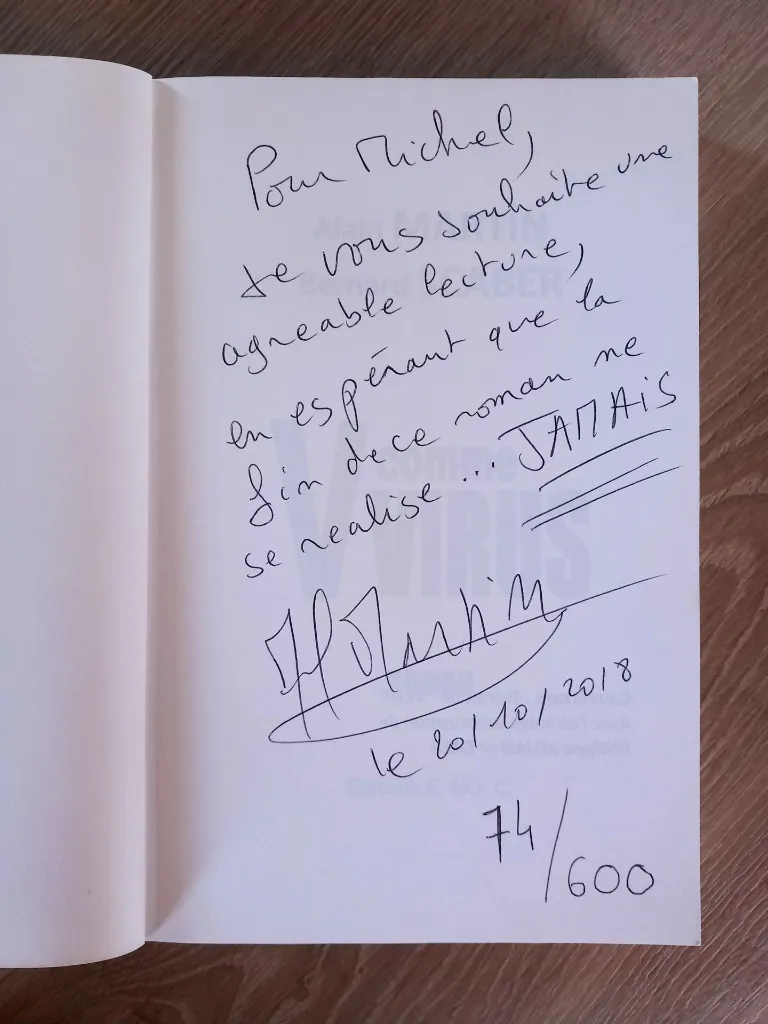 Pour Michel,
Je vous souhaite une
agreable lecture,
en espérant que la
fin de ce roman ne
se realise... JAMAIS
Martin
le 20/10/2018
74/600
Alain MARTIN
Bernard
V comme
VIRUS